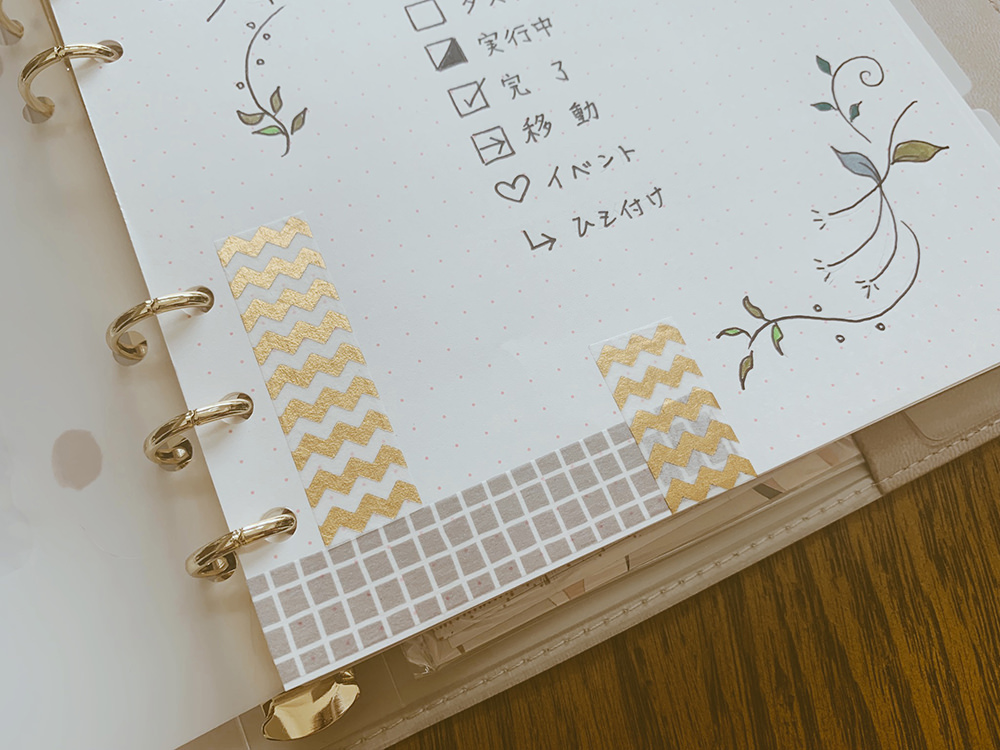 実行中
完了
移動
イベント
ひも付け